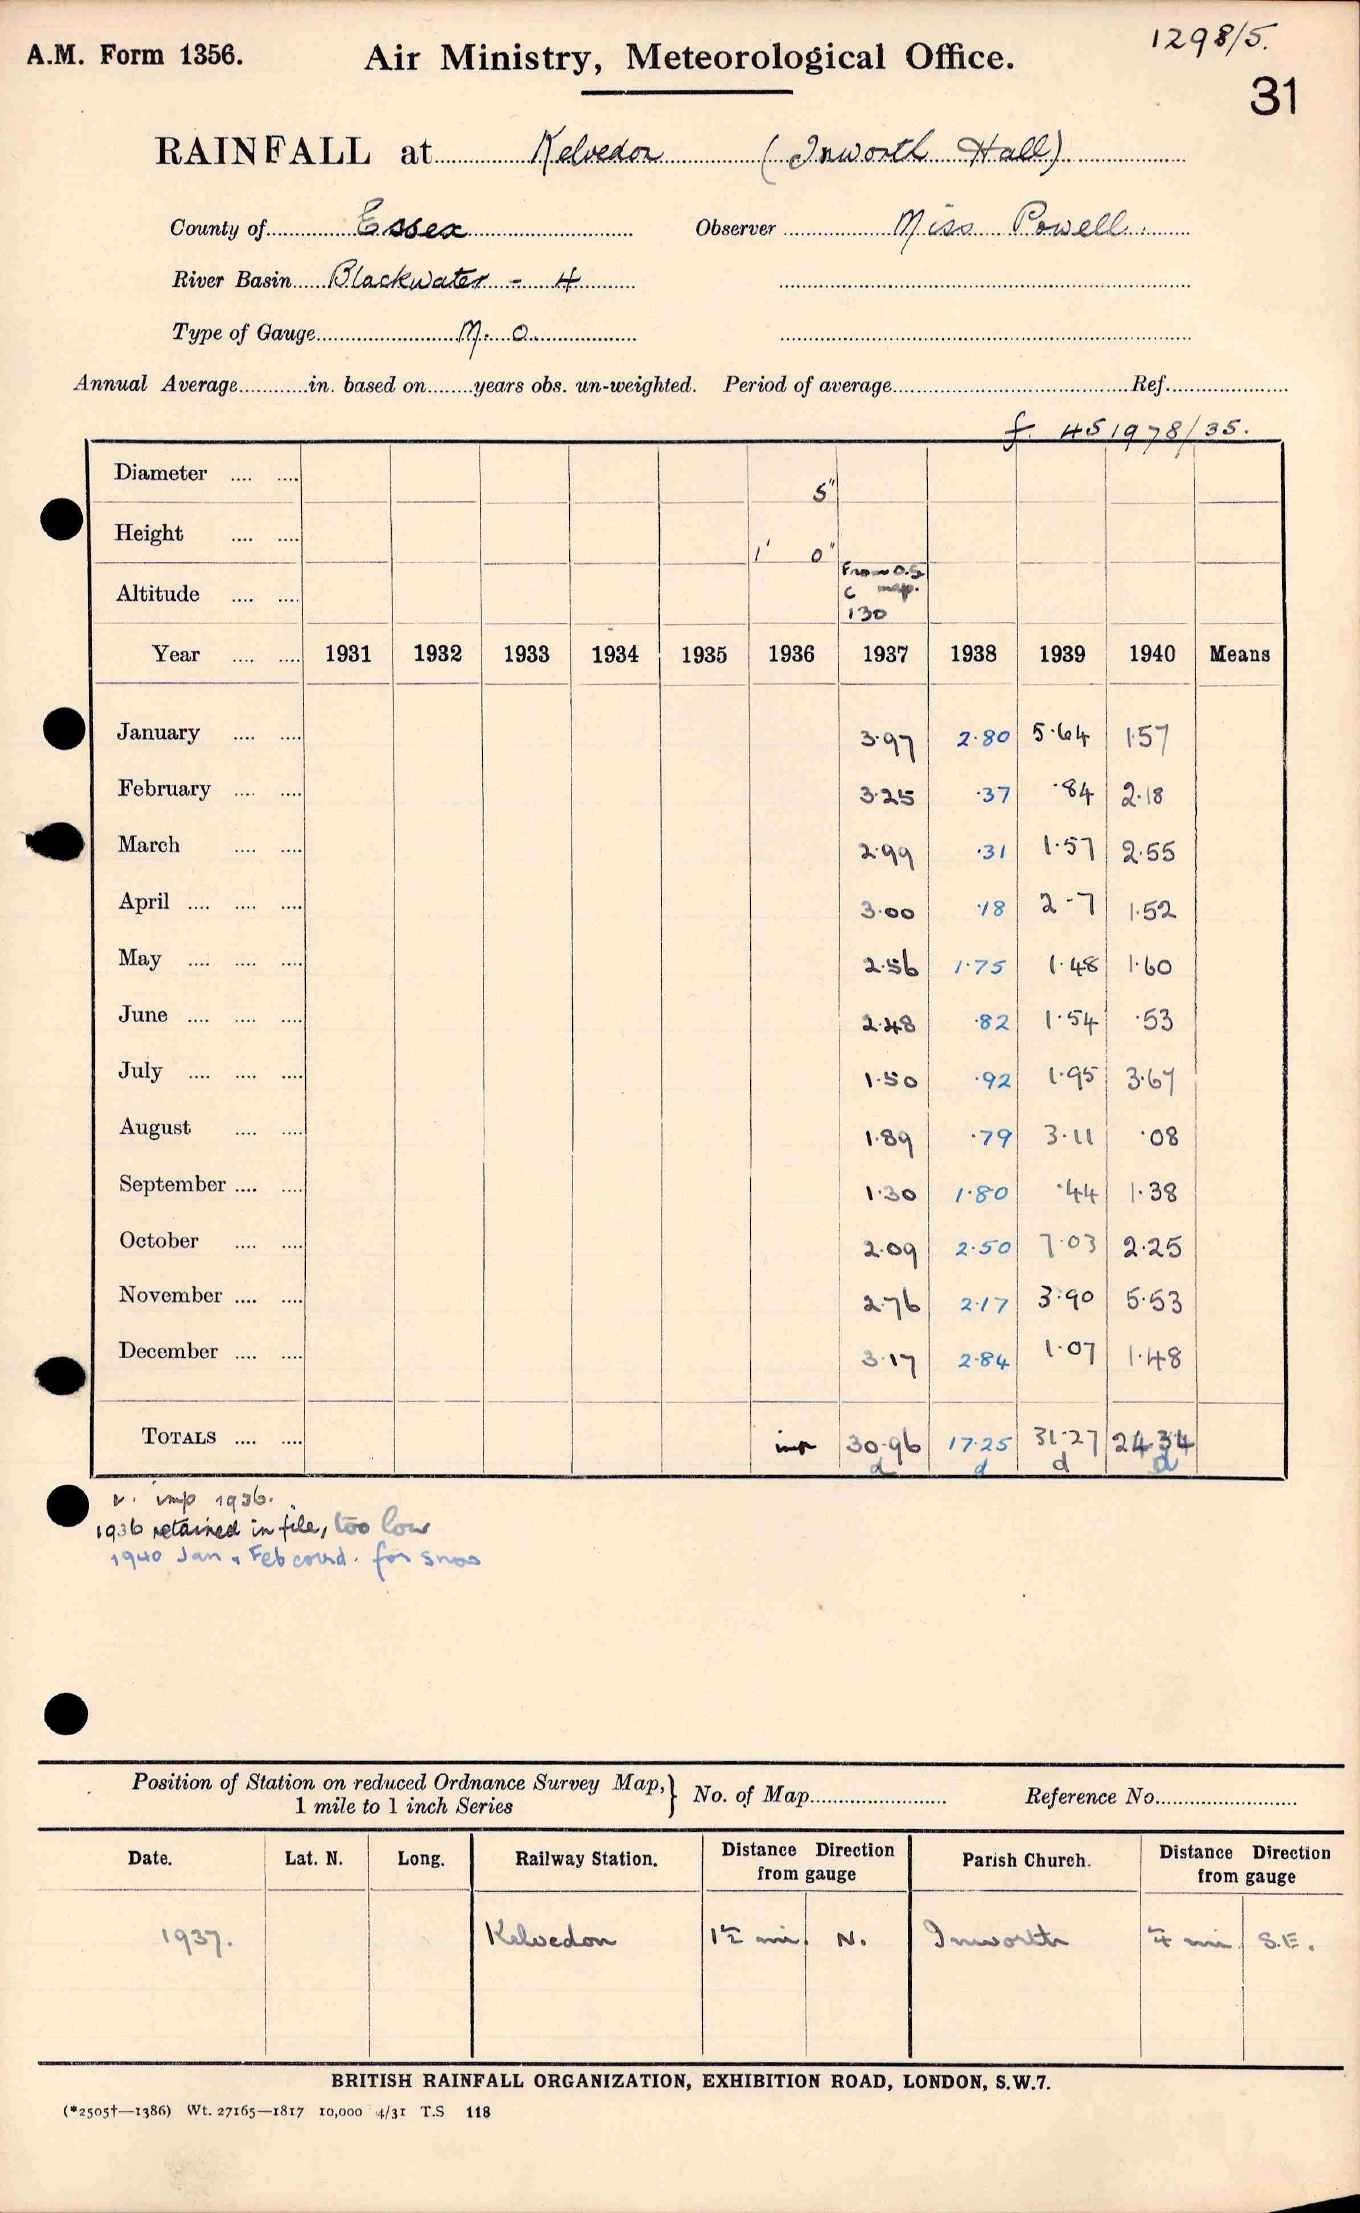 1298/5.
A.M. Form 1356. Air Ministry, Meteorological Office.
31
RAINFALL at Kelvedon (Inworth Hall)
County of Essex Observer Miss Powell.
River Basin Blackwater - 4
Type of Gauge M. O.
Annual Average in. based on years obs. un-weighted. Period of average Ref.
f. 451978/35.
Diameter 5"
Height 1' 0"
Altitude From O.S. map. c 130
Year 1931 1932 1933 1934 1935 1936 1937 1938 1939 1940 Means
January 3.97 2.80 5.64 1.57
February 3.25 .37 .84 2.18
March 2.99 .31 1.57 2.55
April 3.00 .18 2.7 1.52
May 2.56 1.75 1.48 1.60
June 2.48 .82 1.54 .53
July 1.50 .92 1.95 3.67
August 1.89 .79 3.11 .08
September 1.30 1.80 .44 1.38
October 2.09 2.50 7.03 2.25
November 2.76 2.17 3.90 5.53
December 3.17 2.84 1.07 1.48
TOTALS imp 30.96 17.25 31.27 24.34
d d d d
v. imp 1936.
1936 retained in file, too low
1940 Jan & Feb corrd. for snow
Position of Station on reduced Ordnance Survey Map, } No. of Map Reference No.
1 mile to 1 inch Series
Date. Lat. N. Long. Railway Station. Distance Direction from gauge Parish Church. Distance Direction from gauge
1937. Kelvedon 1½ mi. N. Inworth ¼ mi. S.E.
BRITISH RAINFALL ORGANIZATION, EXHIBITION ROAD, LONDON, S.W.7.
(*2505†—1386) Wt. 27165—1817 10,000 4/31 T.S 118